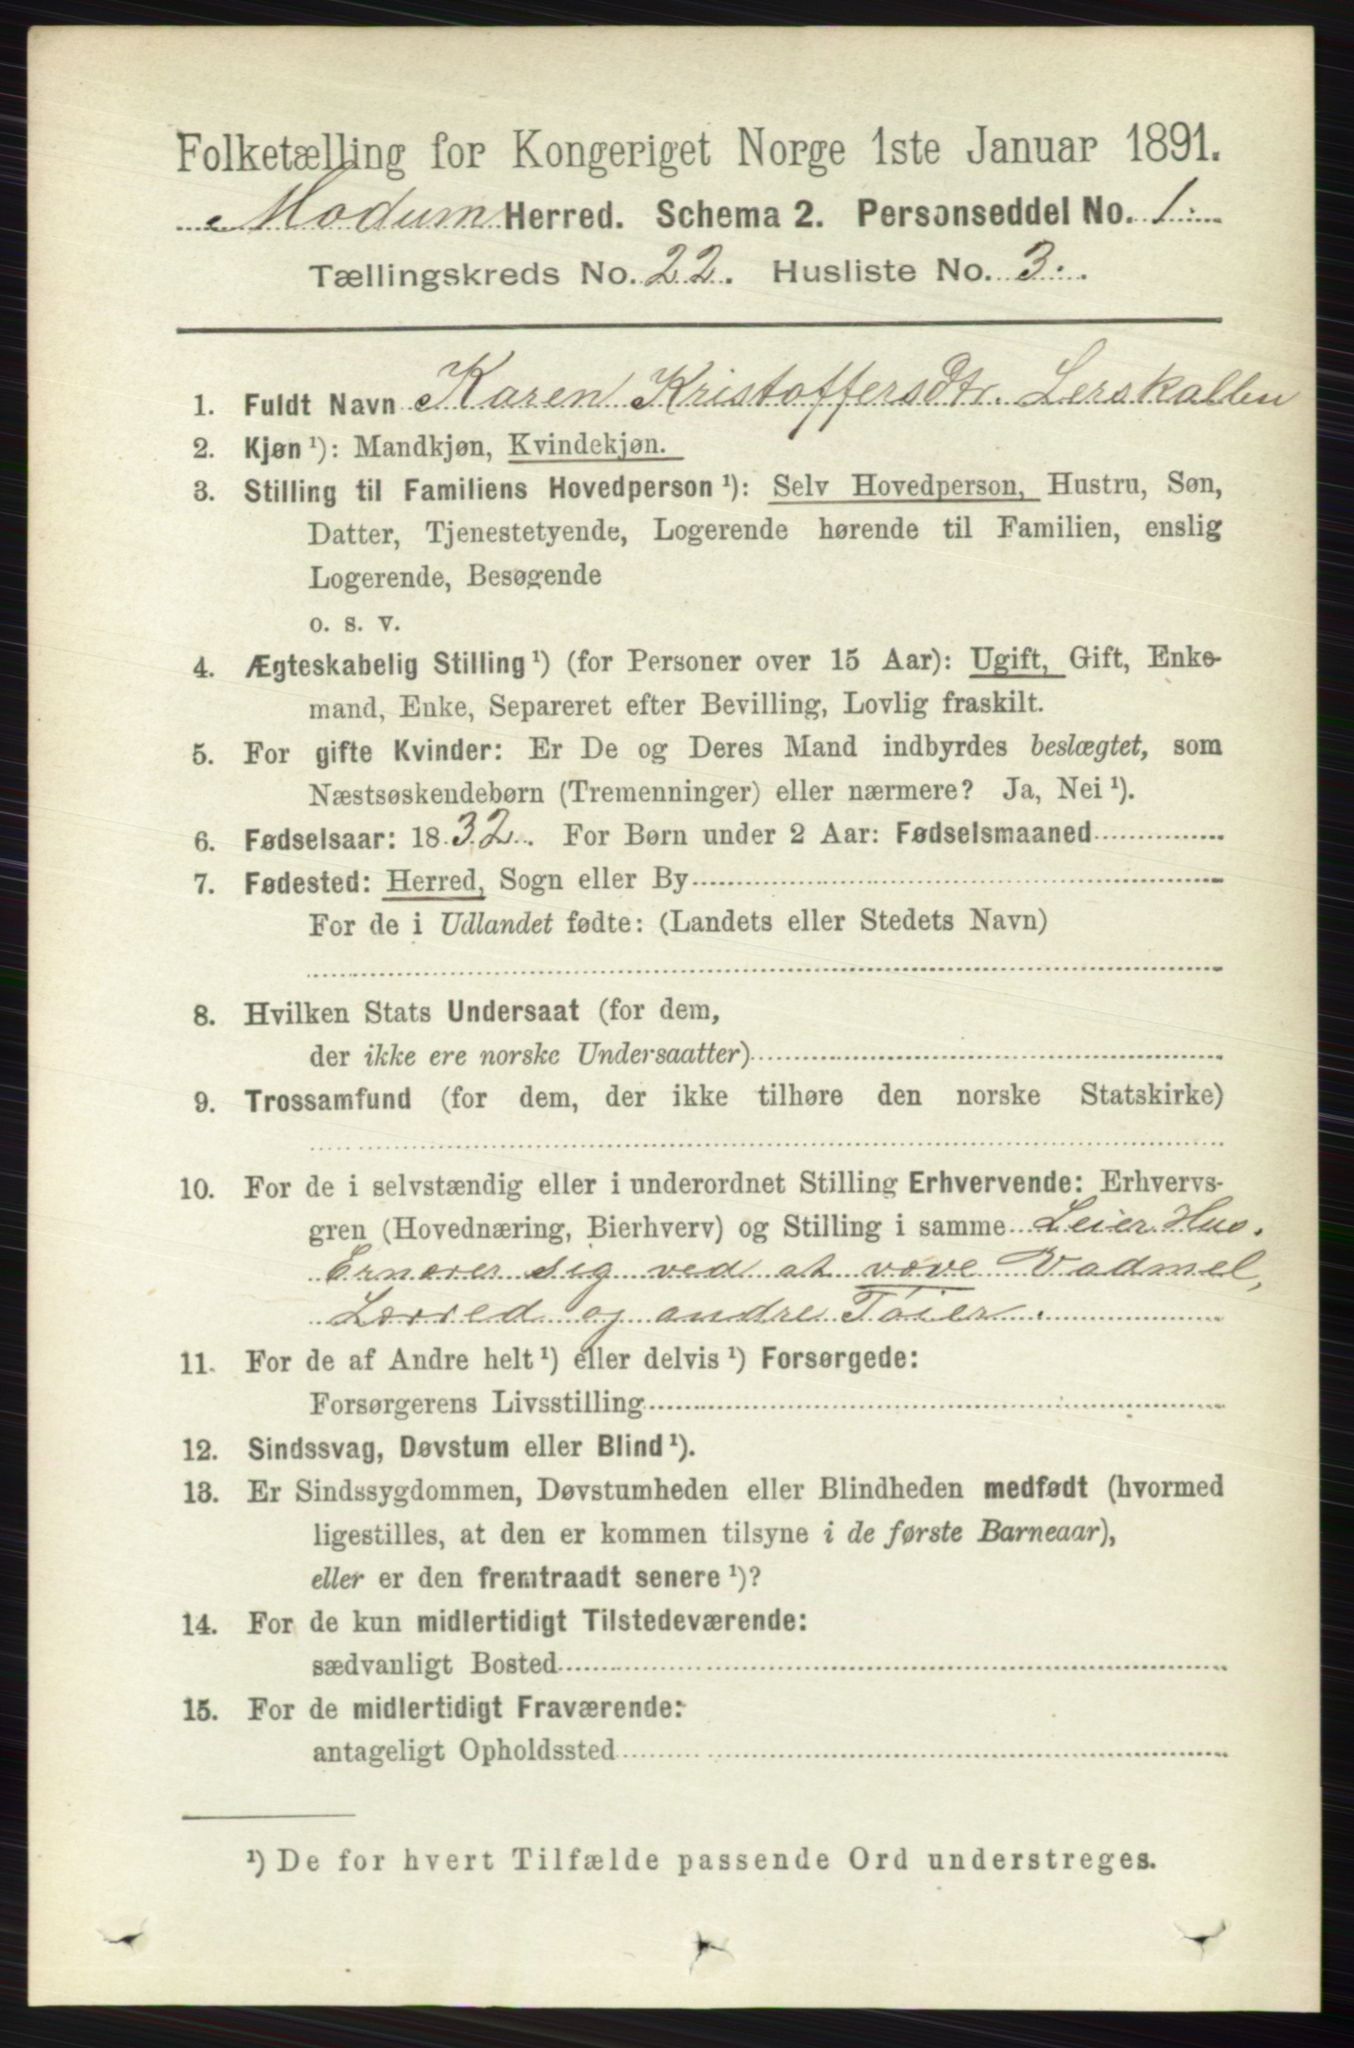 Folketælling for Kongeriget Norge 1ste Januar 1891.
Modum Herred. Schema 2. Personseddel No. 1.
Tællingskreds No. 22. Husliste No. 3.
1. Fuldt Navn Karen Kristoffersdtr. Lerskallen
2. Kjøn ¹): Mandkjøn, Kvindekjøn.
3. Stilling til Familiens Hovedperson ¹): Selv Hovedperson, Hustru, Søn,
Datter, Tjenestetyende, Logerende hørende til Familien, enslig
Logerende, Besøgende
o. s. v.
4. Ægteskabelig Stilling ¹) (for Personer over 15 Aar): Ugift, Gift, Enke-
mand, Enke, Separeret efter Bevilling, Lovlig fraskilt.
5. For gifte Kvinder: Er De og Deres Mand indbyrdes beslægtet, som
Næstsøskendebørn (Tremenninger) eller nærmere? Ja, Nei ¹).
6. Fødselsaar: 1832. For Børn under 2 Aar: Fødselsmaaned
7. Fødested: Herred, Sogn eller By
For de i Udlandet fødte: (Landets eller Stedets Navn)
8. Hvilken Stats Undersaat (for dem,
der ikke ere norske Undersaatter)
9. Trossamfund (for dem, der ikke tilhøre den norske Statskirke)
10. For de i selvstændig eller i underordnet Stilling Erhvervende: Erhvervs-
gren (Hovednæring, Bierhverv) og Stilling i samme Leier Hus.
Ernærer sig ved at væve Vadmel,
Lærred og andre Tøier.
11. For de af Andre helt ¹) eller delvis ¹) Forsørgede:
Forsørgerens Livsstilling
12. Sindssvag, Døvstum eller Blind ¹).
13. Er Sindssygdommen, Døvstumheden eller Blindheden medfødt (hvormed
ligestilles, at den er kommen tilsyne i de første Barneaar),
eller er den fremtraadt senere ¹)?
14. For de kun midlertidigt Tilstedeværende:
sædvanligt Bosted
15. For de midlertidigt Fraværende:
antageligt Opholdssted
¹) De for hvert Tilfælde passende Ord understreges.